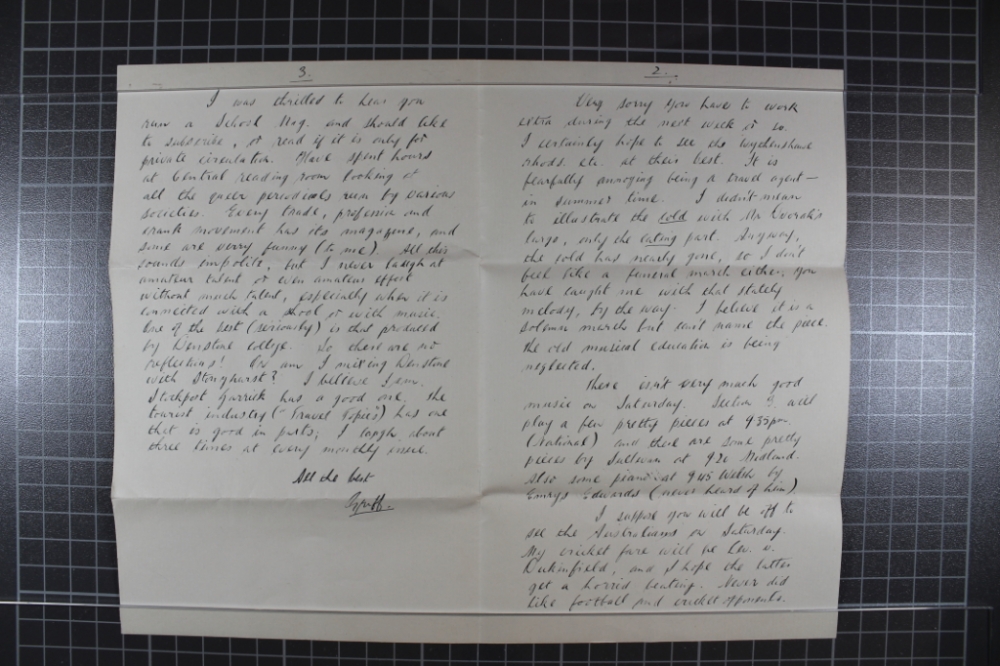 3.
I was thrilled to hear you
run a School Mag. and should like
to subscribe, or read if it is only for
private circulation. Have spent hours
at Central reading room looking at
all the queer periodicals run by various
societies. Every trade, profession and
crank movement has its magazine, and
some are very funny (to me). All this
sounds impolite, but I never laugh at
amateur talent or even amateur effort
without much talent, especially when it is
connected with a school or with music.
One of the best (seriously) is that produced
by Denstone College. So there are no
reflections! Or am I mixing Denstone
with Stonyhurst? I believe I am.
Stockport Garrick has a good one. The
tourist industry ("Travel Topics") has one
that is good in parts; I laugh about
three times at every monthly issue.
All the best
2.
Very sorry you have to work
extra during the next week or so.
I certainly hope to see the Wythenshawe
rhods. etc. at their best. It is
fearfully annoying being a travel agent—
in summer time. I didn't mean
to illustrate the cold with Mr Dvorak's
largo, only the eating part. Anyway,
the cold has nearly gone, so I don't
feel like a funeral march either. You
have caught me with that stately
melody, by the way. I believe it is a
solemn march but can't name the piece.
The old musical education is being
neglected.
There isn't very much good
music on Saturday. Section will
play a few pretty pieces at 9.35pm.
(National) and there are some pretty
pieces by Sullivan at 9.20 Midland.
Also some piano at 9.45 Welsh by
Emrys Edwards (never heard of him).
I suppose you will be off to
see the Australians on Saturday.
My cricket fare will be Lev. v.
Dukinfield, and I hope the latter
get a horrid beating. Never did
like football and cricket opponents.